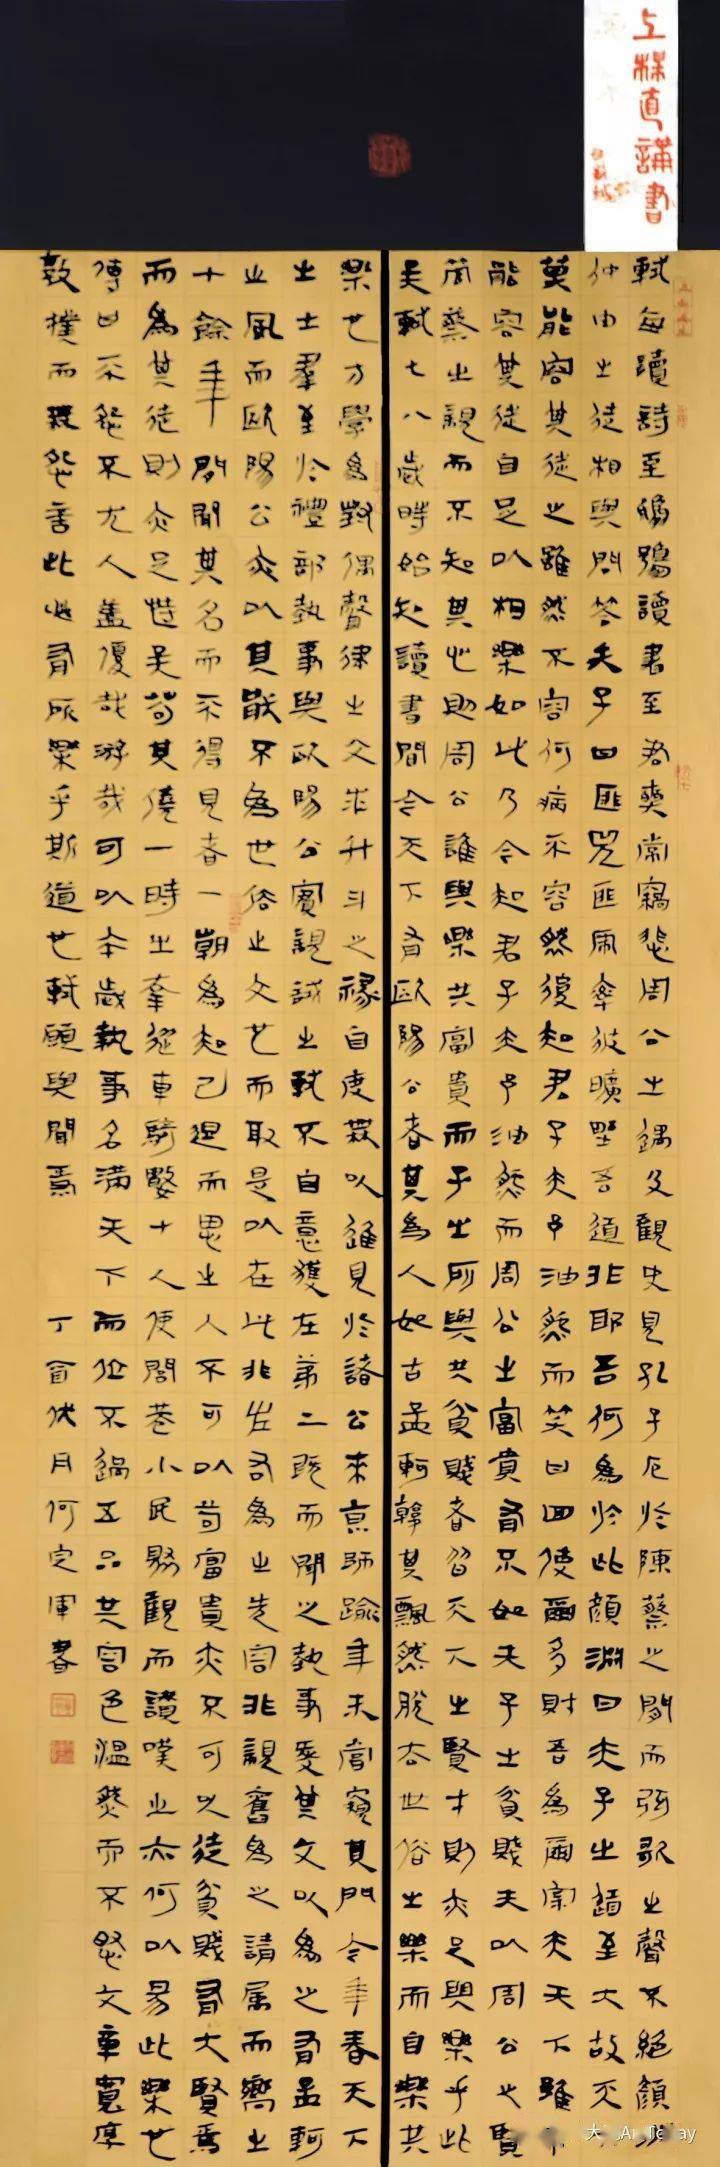 上梅直講書
軾每讀詩至鴟鴞讀書至君奭常竊悲周公之遇及觀史見孔子厄於陳蔡之間而弦歌之聲不絕顏
仲由之徒相與問答夫子曰匪兕匪虎率彼曠野吾道非耶吾何為於此顏淵曰夫子之道至大故天
莫能容其徒之雖然不容何病不容然後知君子夫子油然而笑曰回使爾多財吾為爾宰夫天下雖不
能容其徒自足以相樂如此乃今知君子夫子油然而周公之富貴有不如夫子之貧賤夫以周公之賢
管蔡之親而不知其心則周公誰與樂共富貴而子之所與共貧賤者皆天下之賢才則亦足與樂乎此
矣軾七八歲時始知讀書聞今天下有歐陽公者其為人如古孟軻韓其飄然脫去世俗之樂而自樂共
樂也方學為對偶聲律之文求升斗之祿自度無以進見於諸公來京師逾年未嘗窺其門今年春天下
之士羣至於禮部執事與歐陽公實親試之軾不自意獲在第二既而聞之執事愛其文以為之有孟軻
之風而歐陽公亦以其能不為世俗之文也而取是以在此非左右為之先容非親舊為之請屬而嚮之
十餘年間聞其名而不得見者一朝為知己退而思之人不可以苟富貴亦不可以徒貧賤有大賢焉
而為其徒則亦足恃矣苟其僥一時之幸從車騎數十人使閭巷小民聚觀而讚嘆之亦何以易此樂也
傳曰不怨不尤人蓋優哉游哉可以卒歲執事名滿天下而位不過五品其容色溫然而不怒文章寬厚
敦樸而無怨言此必有所樂乎斯道也軾願與聞焉 丁酉伏月何定軍書